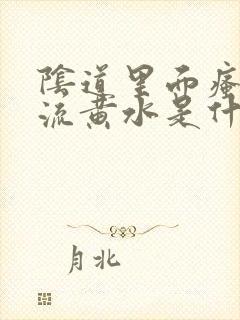 陰道里面瘙
流黃水是什
月北